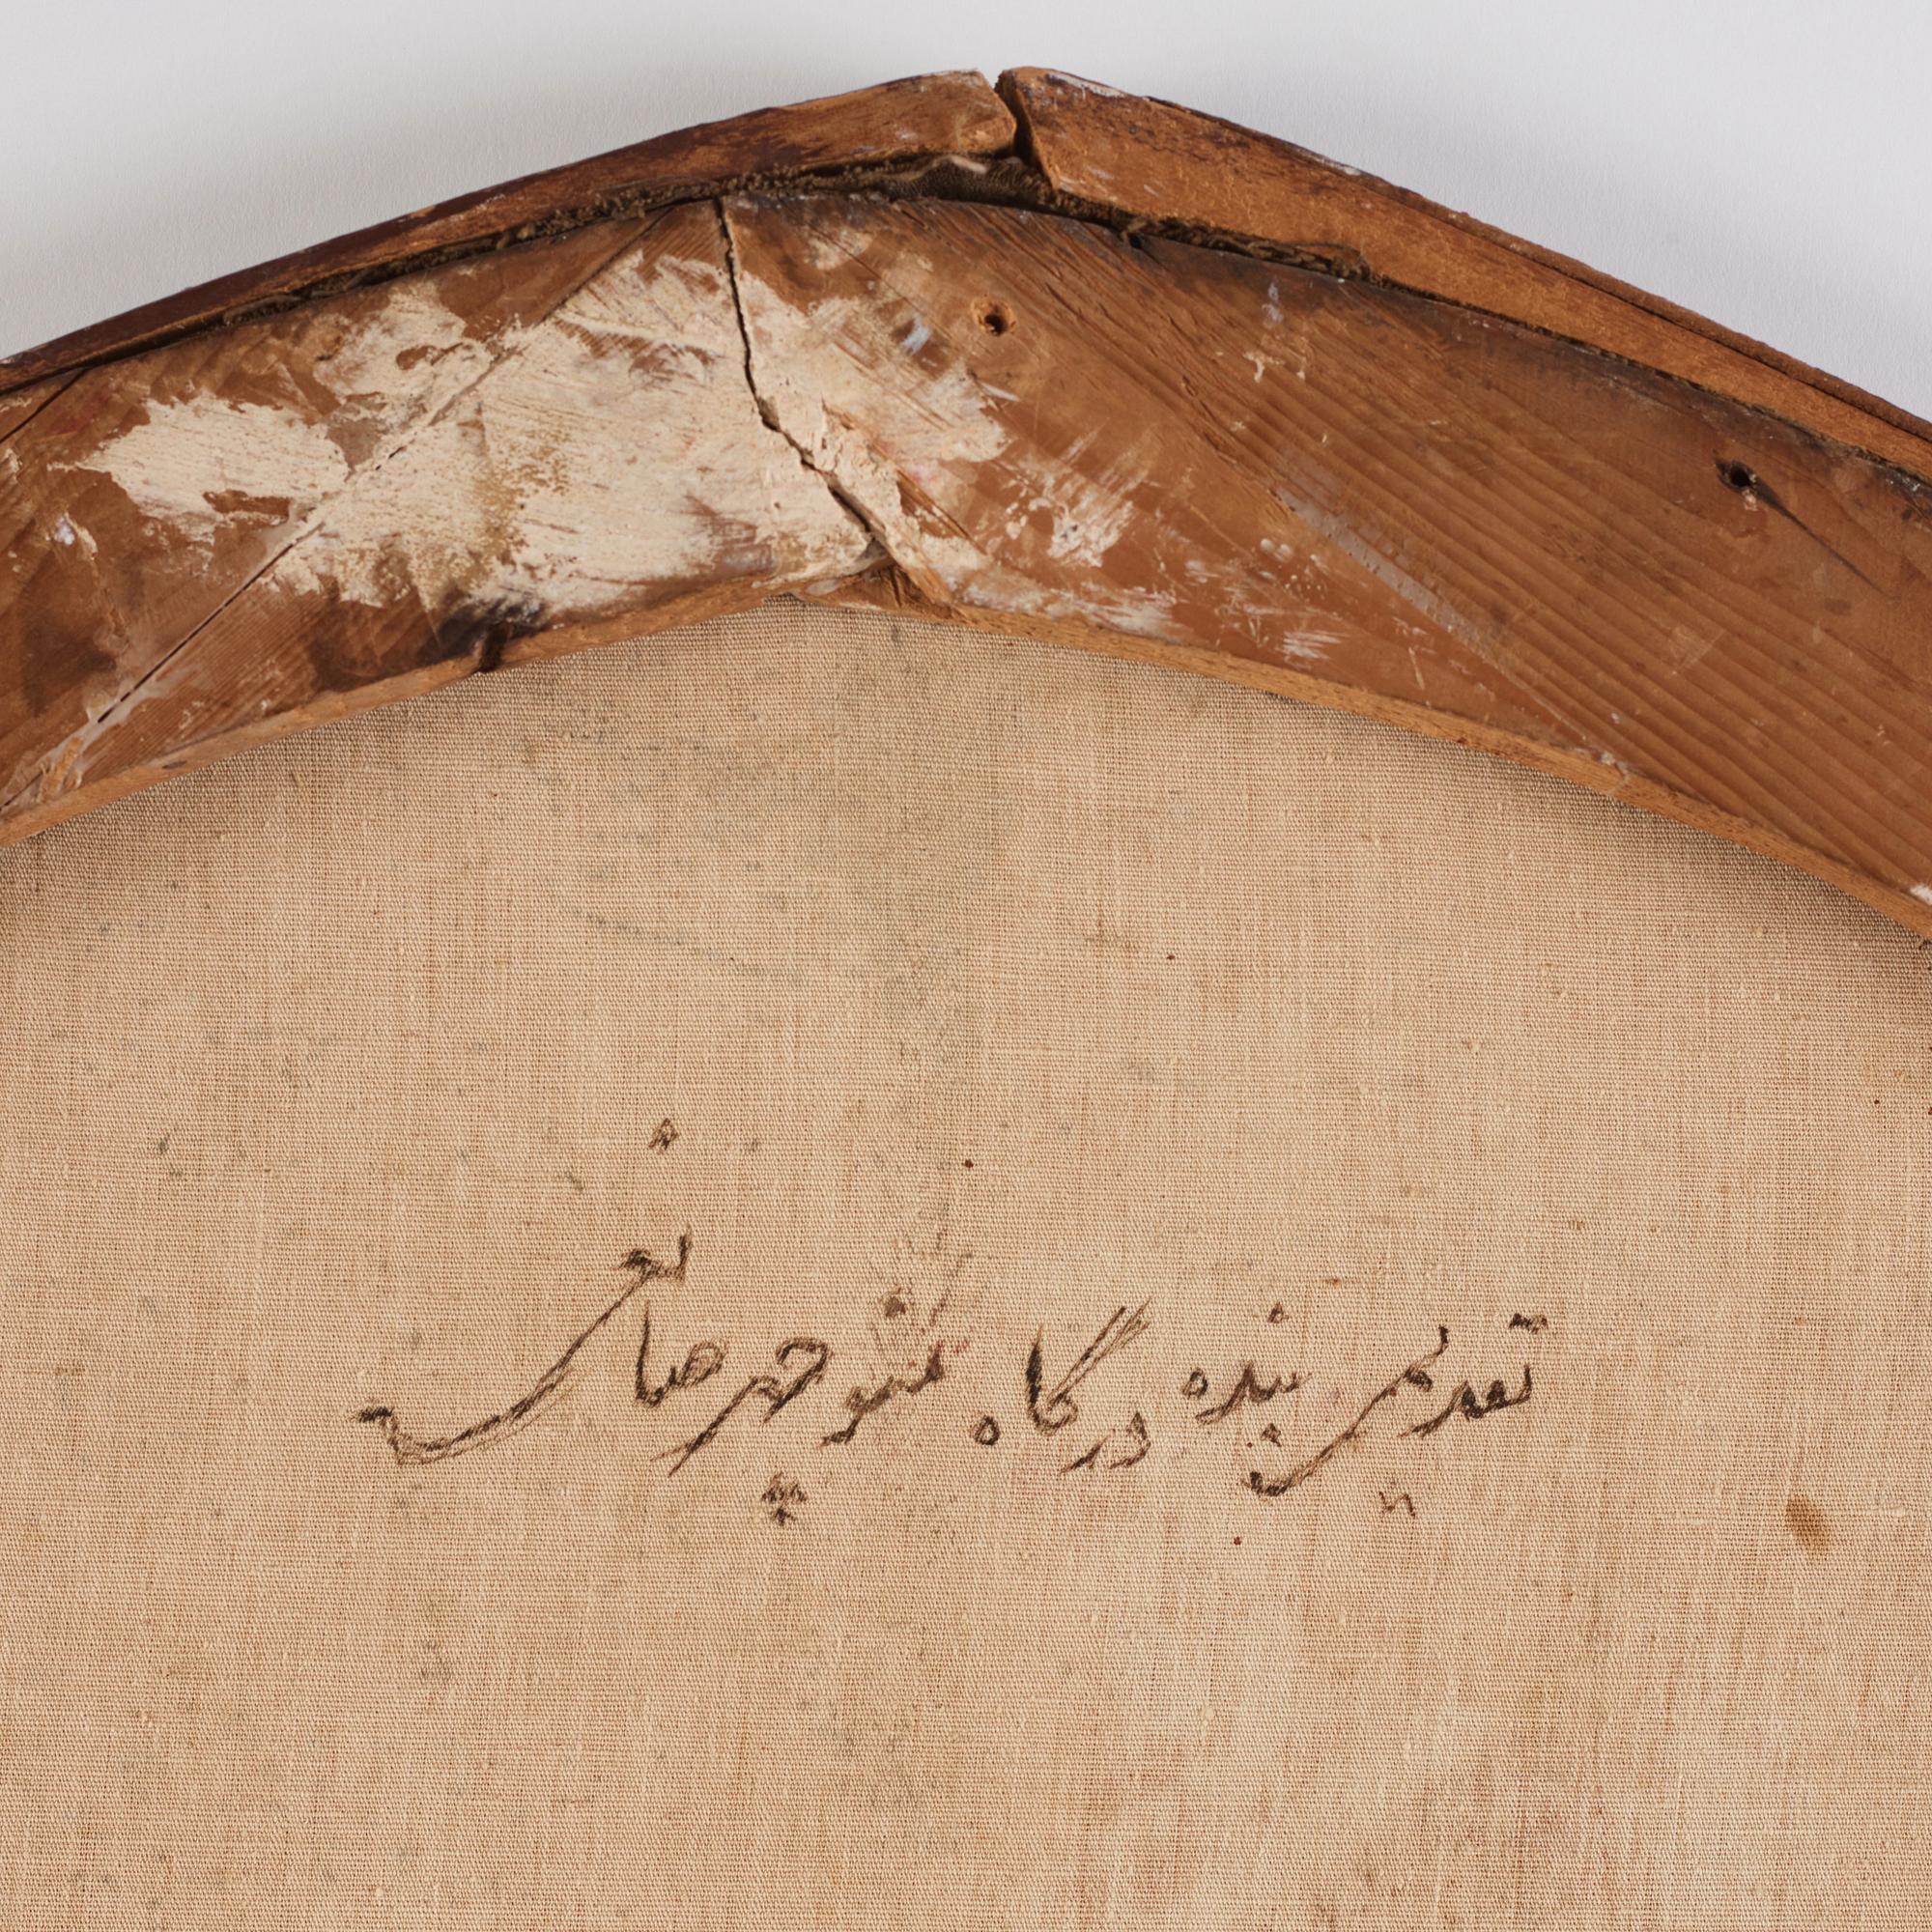 تقدیمی بنده درگاه منوچهر صانعی